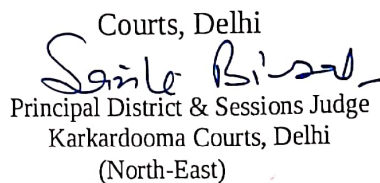 Courts, Delhi
Principal District & Sessions Judge
Karkardooma Courts, Delhi
(North-East)